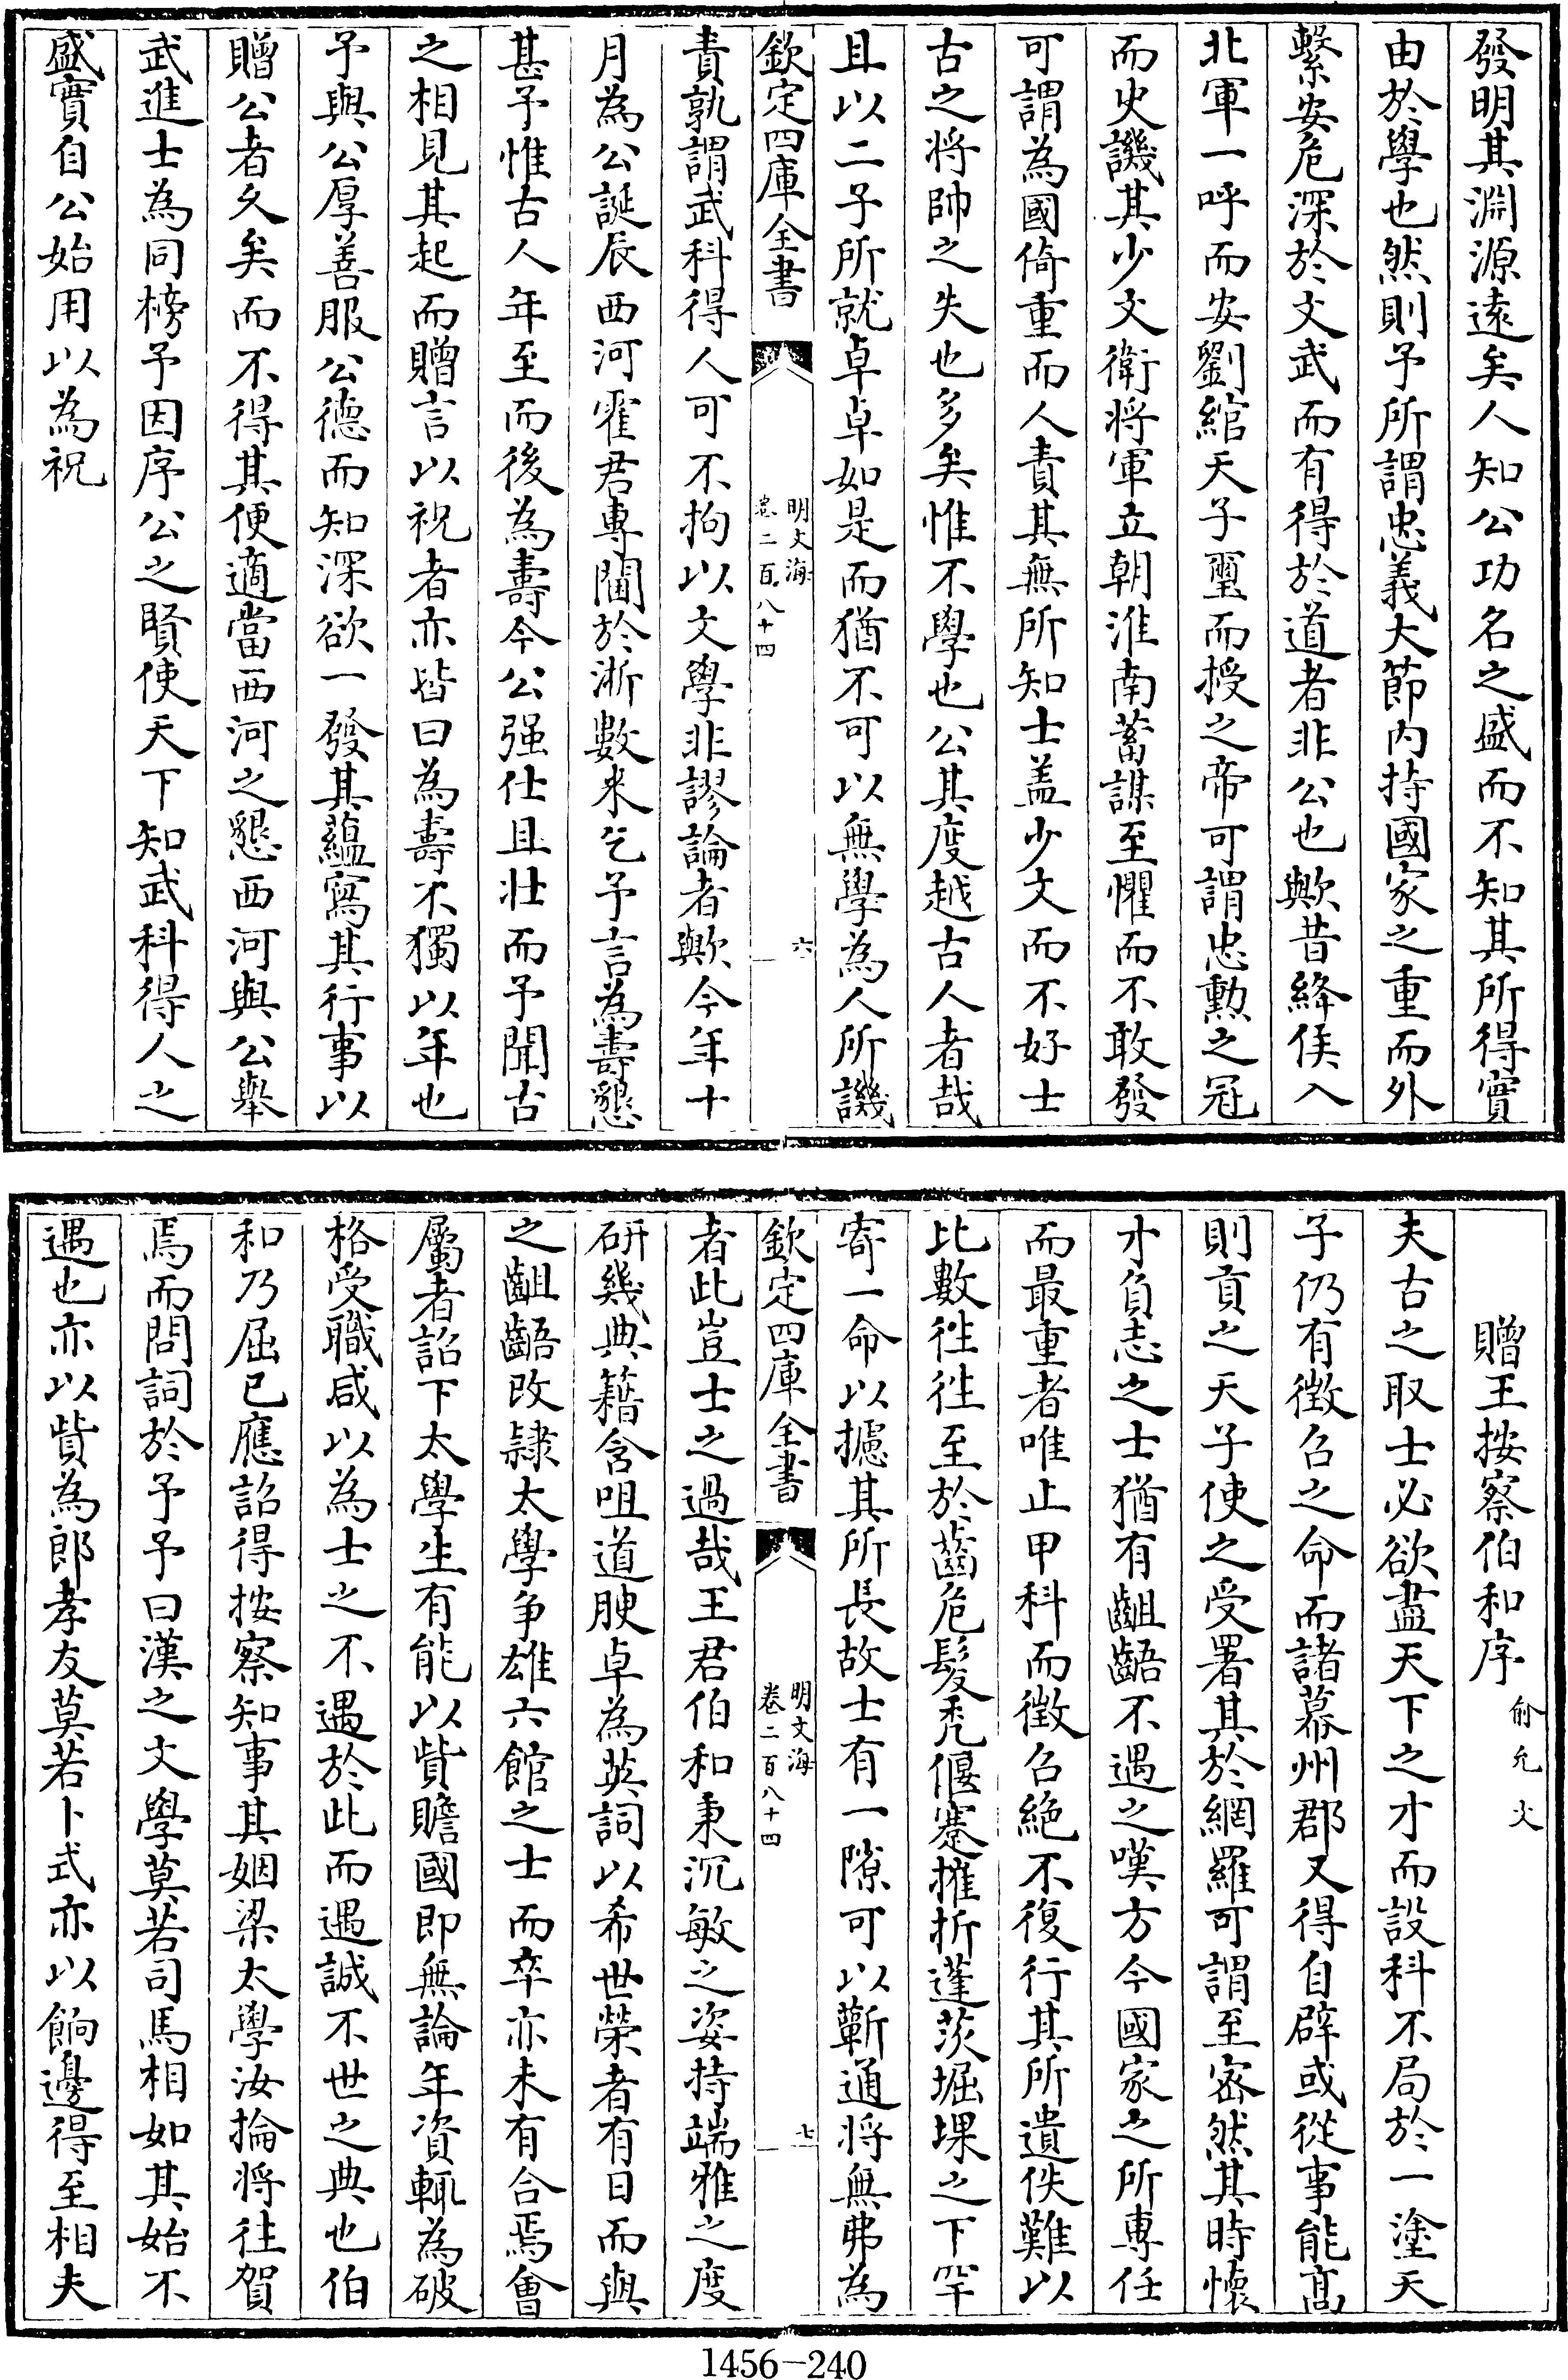 發明其淵源遠矣人知公功名之盛而不知其所得實
由於學也然則予所謂忠義大節内持國家之重而外
繫安危深於文武而有得於道者非公也歟昔絳侯入
北軍一呼而安劉綰天子璽而授之帝可謂忠勲之冠
而史譏其少文衛将軍立朝淮南蓄謀至懼而不敢發
可謂為國倚重而人責其無所知士盖少文而不好士
古之将帥之失也多矣惟不學也公其度越古人者哉
且以二子所就卓卓如是而猶不可以無學為人所譏
欽定四庫全書
明文海
卷二百八十四
六
責孰謂武科得人可不拘以文學非謬論者歟今年十
月為公誕辰西河霍君專閫於淛數来乞予言為壽懇
甚予惟古人年至而後為壽今公强仕且壯而予聞古
之相見其起而贈言以祝者亦皆曰為壽不獨以年也
予與公厚善服公德而知深欲一發其蘊寫其行事以
贈公者久矣而不得其便適當西河之懇西河與公舉
武進士為同榜予因序公之賢使天下知武科得人之
盛實自公始用以為祝
贈王按察伯和序
俞允文
夫古之取士必欲盡天下之才而設科不局於一塗天
子仍有徴召之命而諸幕州郡又得自辟或從事能髙
則貢之天子使之受署其於網羅可謂至宻然其時懐
才負志之士猶有齟齬不遇之嘆方今國家之所專任
而最重者唯止甲科而徴召絶不復行其所遺佚難以
比數徃徃至於齒危髪秃偃蹇摧折蓬茨堀堁之下罕
寄一命以攄其所長故士有一隙可以蘄通将無弗為
欽定四庫全書
明文海
卷二百八十四
七
者此豈士之過哉王君伯和秉沉敏之姿持端雅之度
研幾典籍含咀道腴卓為英詞以希世榮者有日而與
之齟齬改隸太學争雄六館之士而卒亦未有合焉會
屬者詔下太學生有能以貲贍國即無論年資輒為破
格受職咸以為士之不遇於此而遇誠不世之典也伯
和乃屈已應詔得按察知事其姻梁太學汝掄将往賀
焉而問詞於予予曰漢之文學莫若司馬相如其始不
遇也亦以貲為郎孝友莫若卜式亦以餉邊得至相夫
1456-240